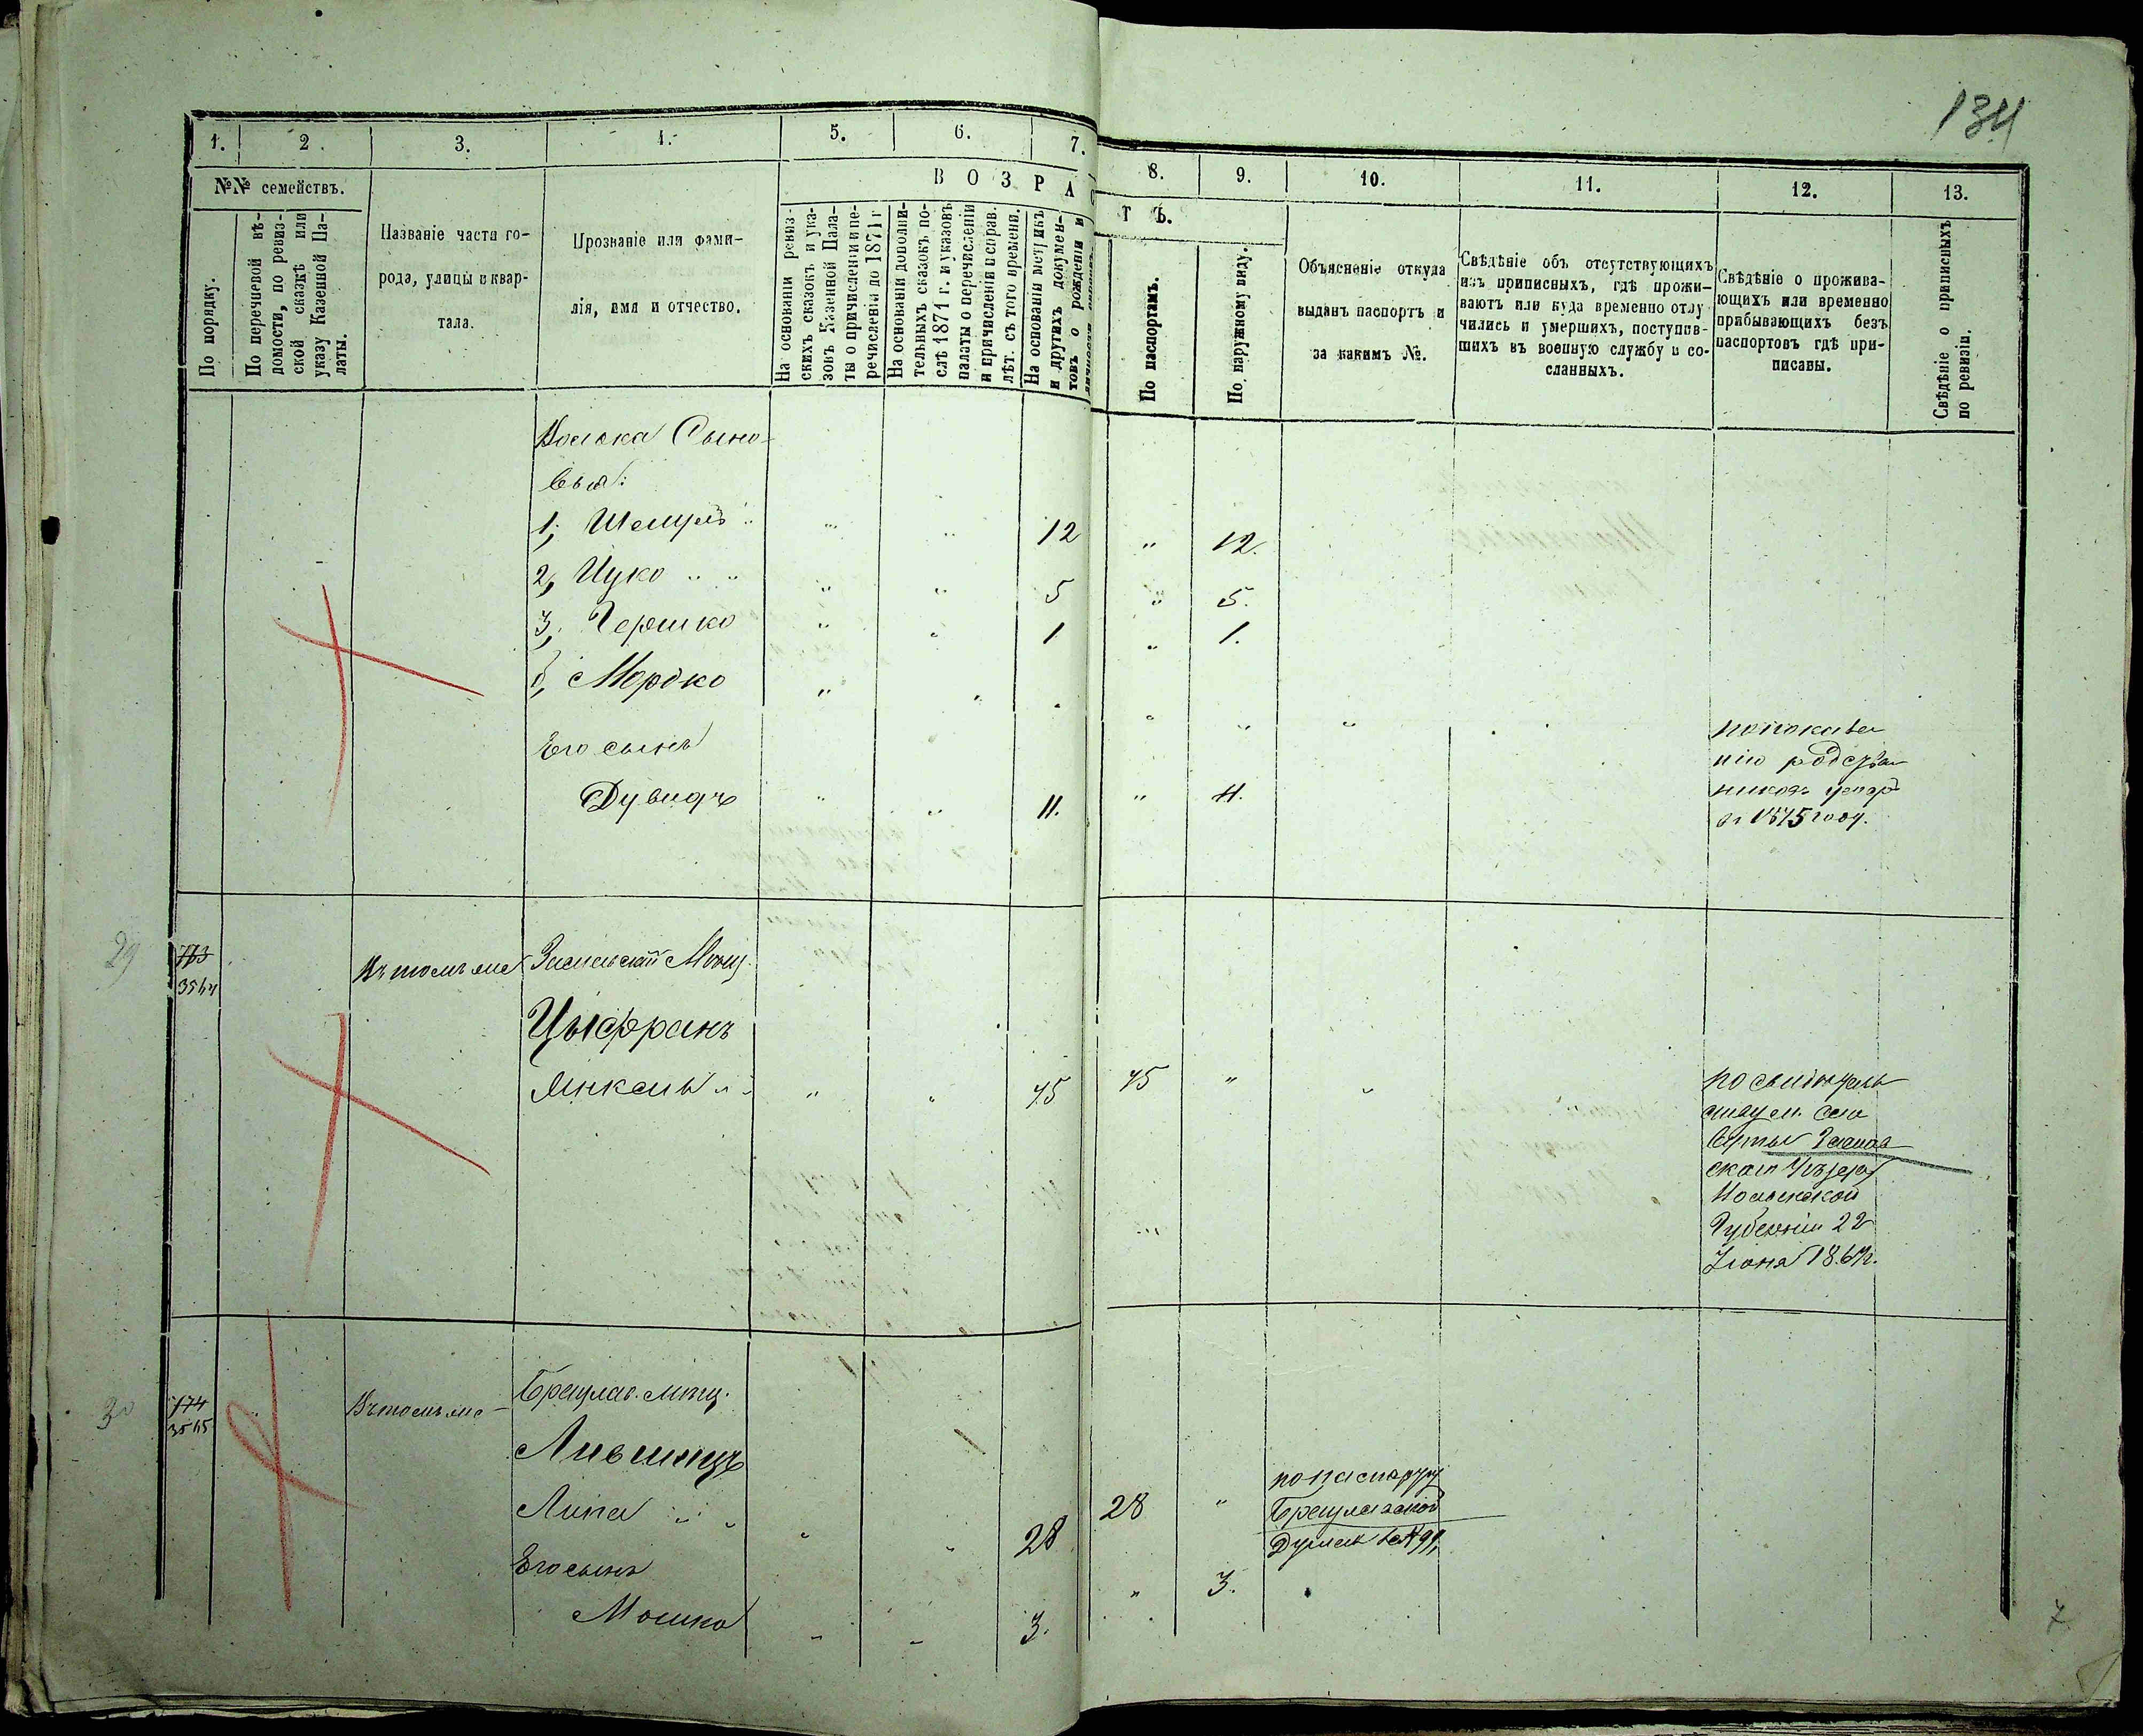 134
1. 2. 3. 4. 5. 6. 7. 8. 9. 10. 11. 12. 13.
№№ семействъ.
ВОЗРАСТЪ.
По порядку.
По перечневой вѣ-
домости, по ревиз-
ской сказкѣ или
указу Казенной Па-
латы.
Названіе части го-
рода, улицы и квар-
тала.
Прозваніе или фами-
лія, имя и отчество.
На основаніи ревиз-
скихъ сказокъ и ука-
зовъ Казенной Пала-
ты о причисленіи и пе-
речисленіи до 1871 г
На основаніи дополни-
тельныхъ сказокъ по-
слѣ 1871 г. и указовъ
палаты о перечисленіи
и причисленіи и справ.
лѣт. съ того времени.
На основаніи метрикъ
и другихъ докумен-
товъ о рожденіи и
По паспортамъ.
По наружному виду.
Объясненіе откуда
выданъ паспортъ и
за какимъ №.
Свѣдѣніе объ отсутствующихъ
изъ приписныхъ, гдѣ прожи-
ваютъ или куда временно отлу
чились и умершихъ, поступив-
шихъ въ военную службу и со-
сланныхъ.
Свѣдѣніе о прожива-
ющихъ или временно
прибывающихъ безъ
паспортовъ гдѣ при-
писаны.
Свѣдѣніе о приписныхъ
по ревизіи.
Сыно-
вья:
1, Шмуль 12 12.
2, Ицко 5 5.
3, Гершко 1 1.
б, Мордко
Его сынъ
Дувидъ 11. 11.
по показа
нію родстве
никовъ умеръ
въ 1875 году.
29
773
3564
Въ томъ же
Заславскій Мѣщ.
Цыфранъ
Янкель 45 45
по свидѣтель
ству м.
Заслав
скаго Уѣзда
Волынской
Губерніи 22
Іюня
30
774
3565
Въ томъ же
Брацлав. мѣщ.
Лившицъ
Липа 28 28
по паспорту
Брацлавской
Думы за № 91,
Его сынъ
Мошко 3. 3.
7